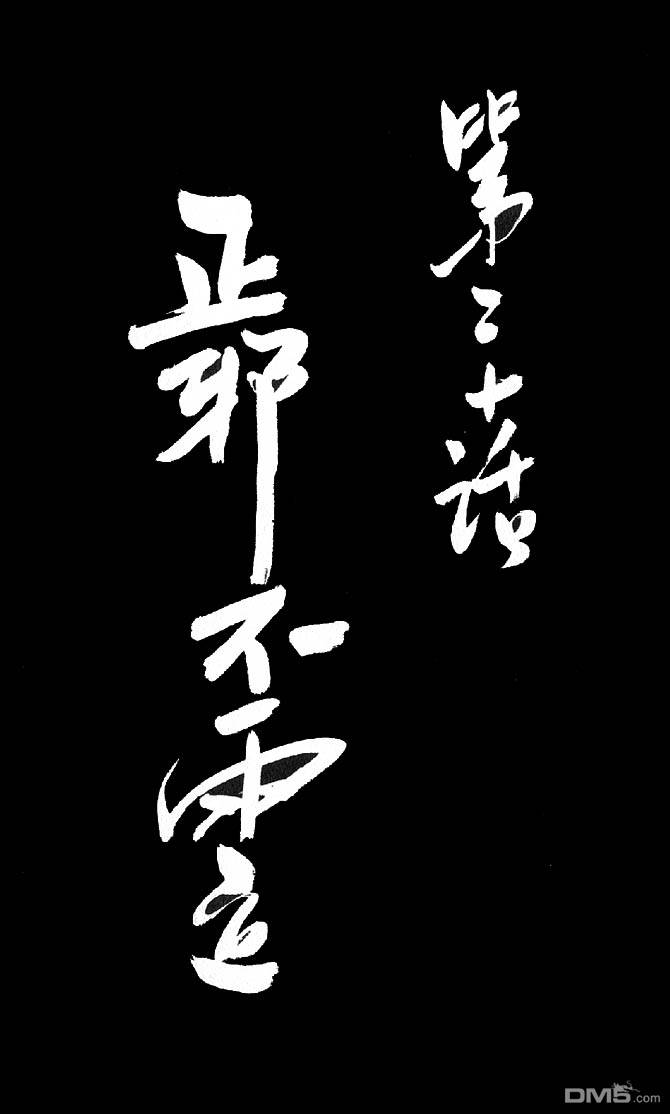 第二十話
正邪不两立
DM5.com